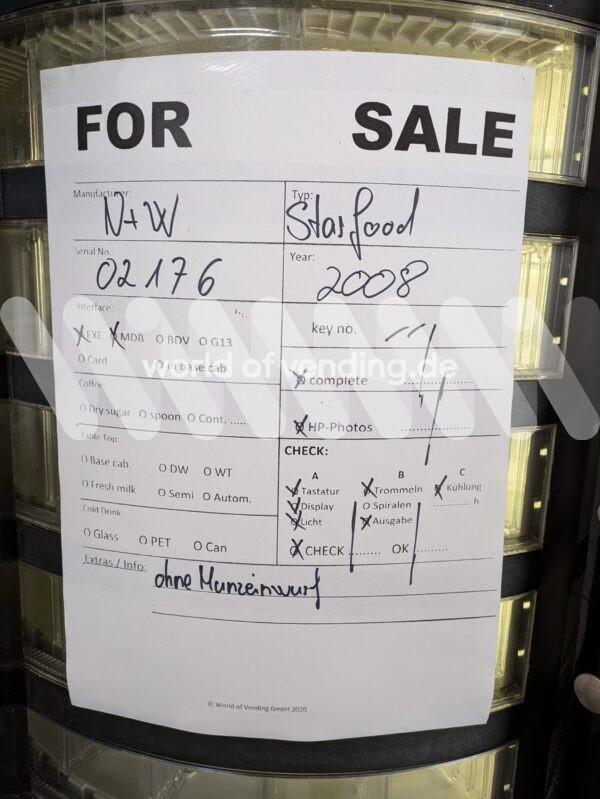 FOR SALE
Manufacturer: N+W
Typ: Starfood
Serial No. 02176
Year: 2008
Interface:
X EXE X MDB O BDV O G13
O Card O in base cab.
key no.
world of vending.de
X complete ............
Coffee:
O Dry sugar O spoon O Cont. .....
X HP-Photos ............
Table Top:
O Base cab. O DW O WT
O Fresh milk O Semi O Autom.
CHECK:
A B C
X Tastatur X Trommeln X Kühlung
X Display O Spiralen ............ h
X Licht X Ausgabe
X CHECK ......... OK .........
Cold Drink:
O Glass O PET O Can
Extras / Info: ohne Münzeinwurf
© World of Vending GmbH 2020